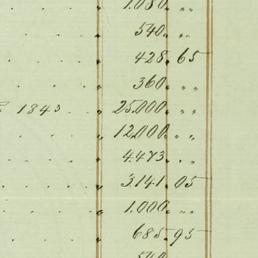 . . . " 1.080. " "
. . . " 540. " "
. . . " 428. 65
. . . " 360. " "
1843 . . " 25.000. " "
. . . " 12.000. " "
. . . " 4.473. " "
. . . " 3.141. 05
. . . " 1.000. " "
. . . " 685. 95
540